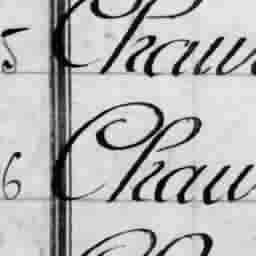 5 Chau
6 Chau